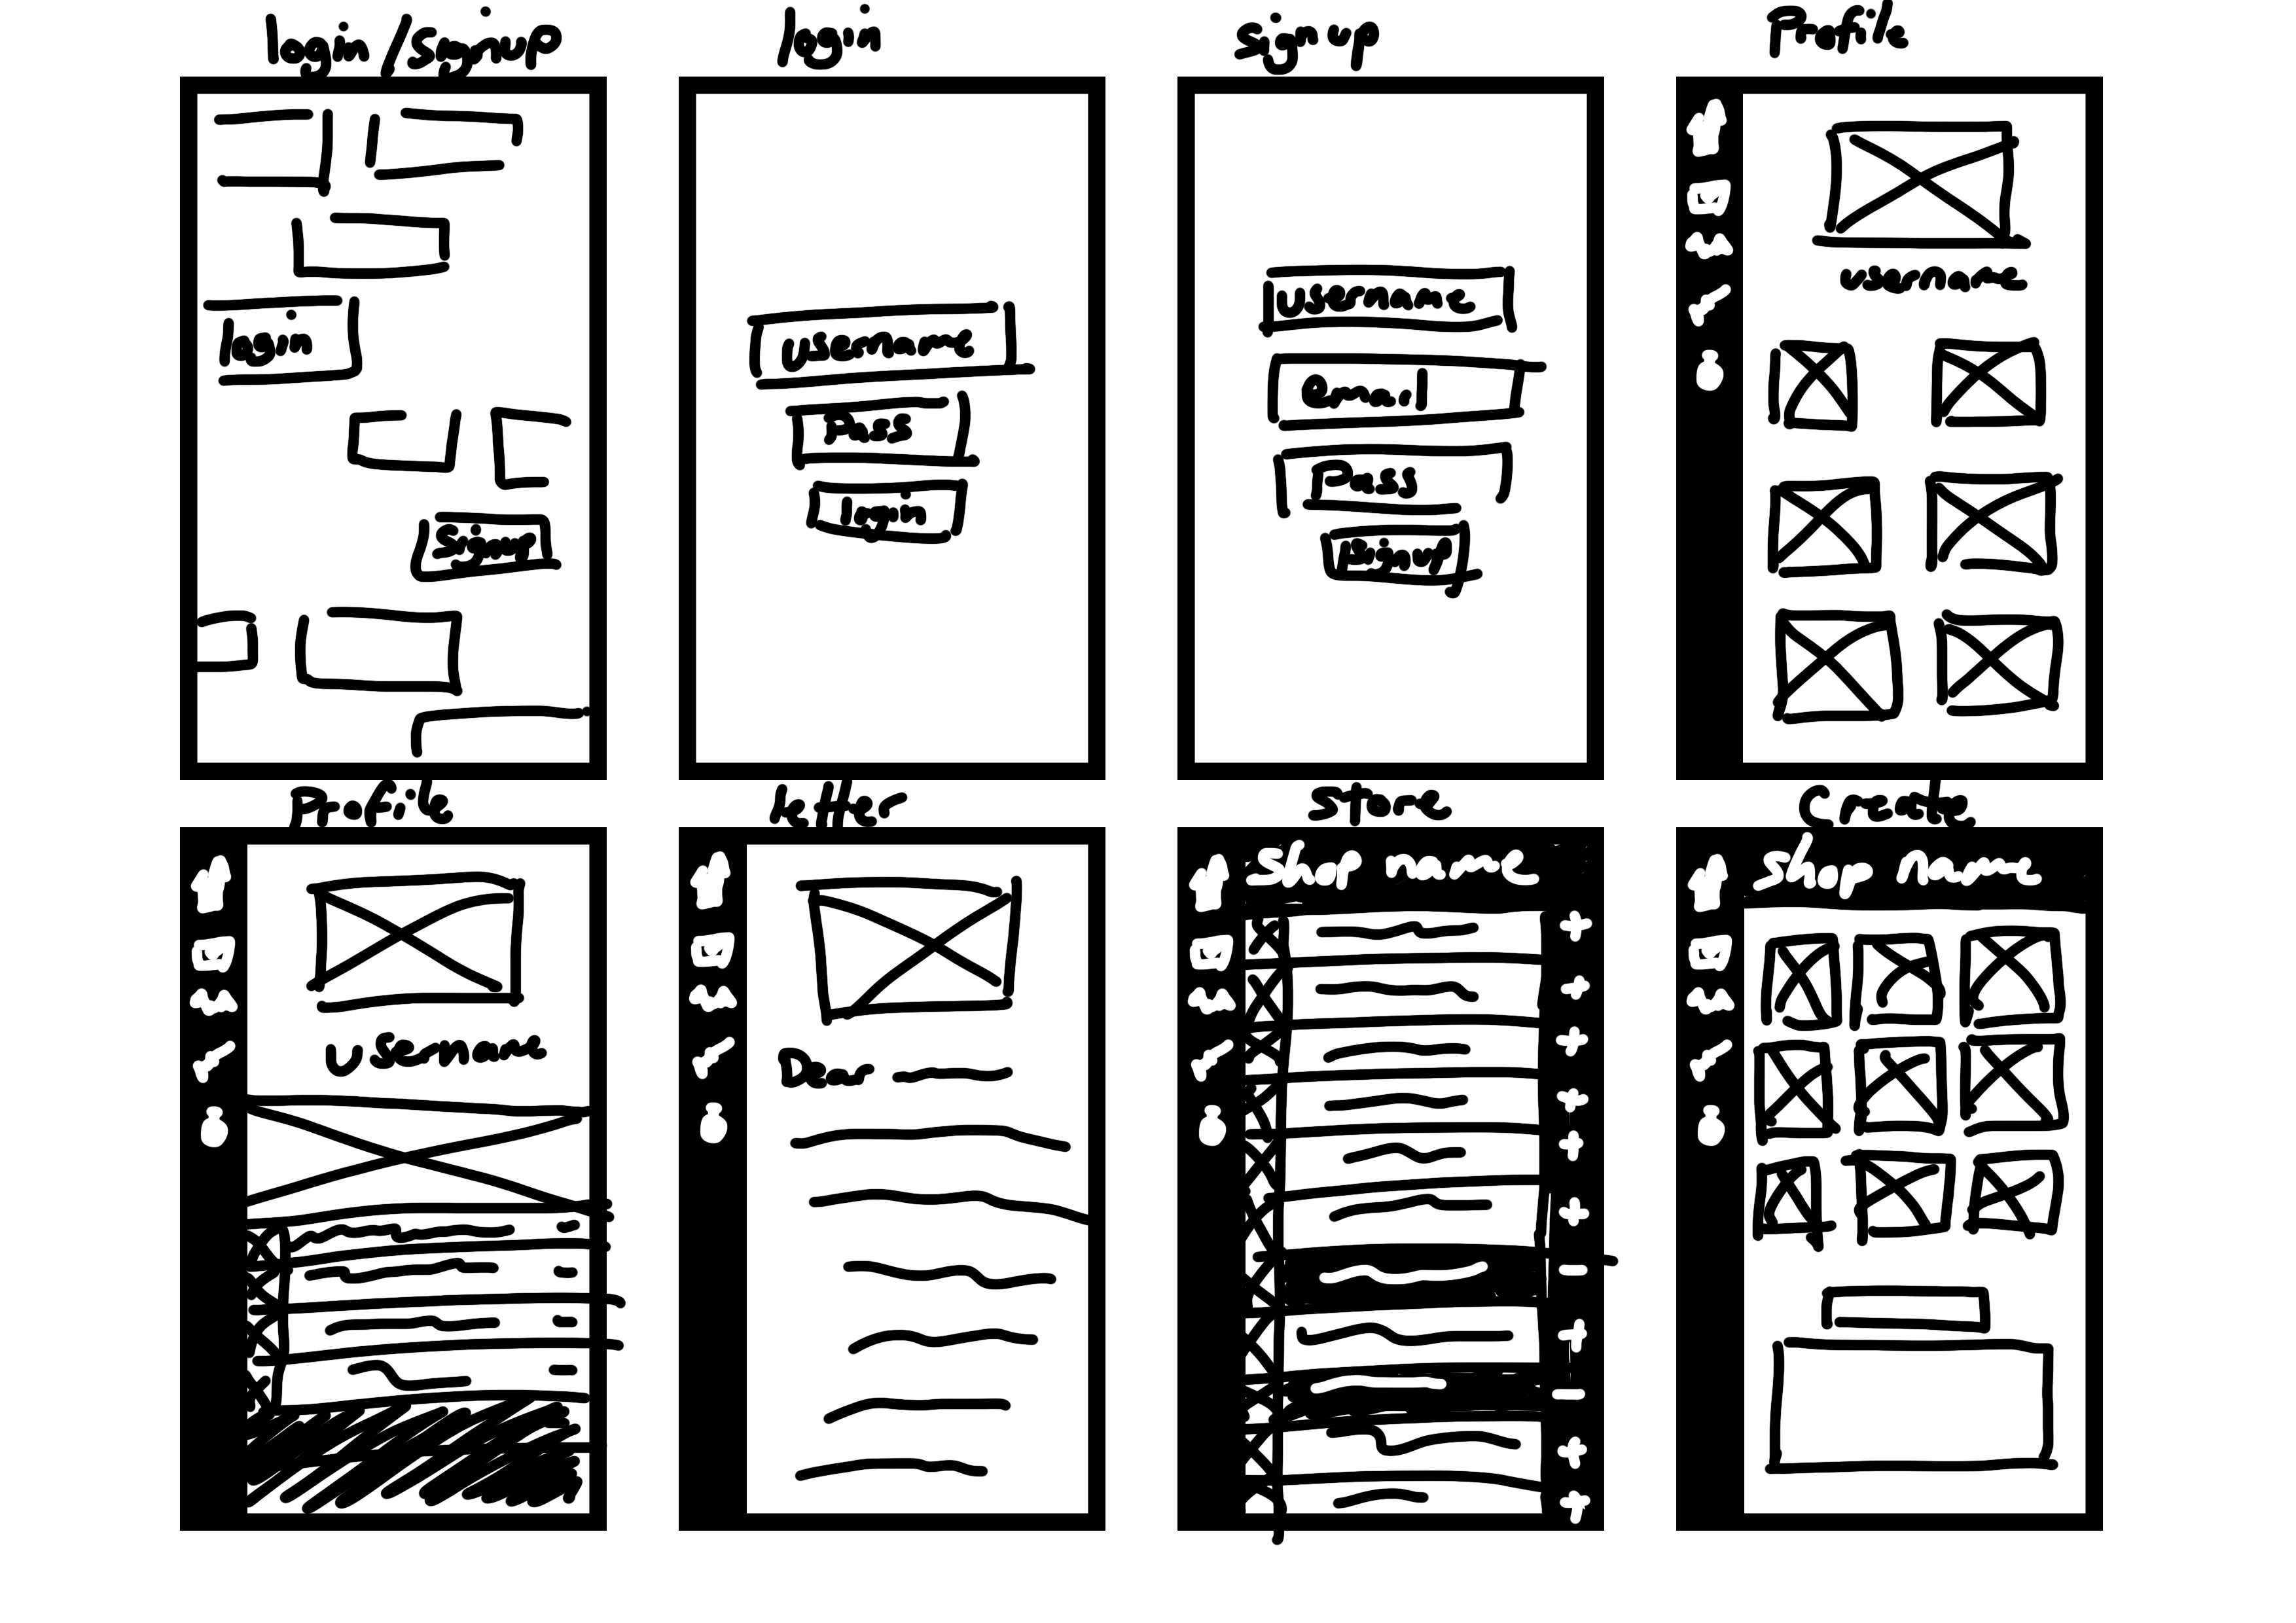 login/signup
login
signup
login
username
Pass
login
signup
username
email
Pass
signup
Profile
username
Profile
username
letter
Dear
Store
Shop name
Create
Shop Name